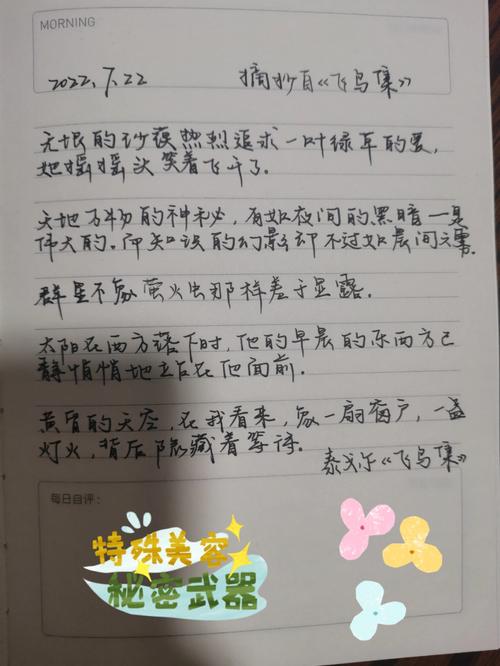 MORNING
2022.7.22 摘抄自《飞鸟集》
无垠的沙漠热烈追求一叶绿草的爱,
她摇摇头笑着飞开了。
天地万物的神秘,有如夜间的黑暗—是
伟大的。而知识的幻影却不过如晨间之雾。
群星不象萤火虫那样羞于显露。
太阳在西方落下时,他的早晨的东西方已
静悄悄地站在他面前。
黄昏的天空,在我看来,象一扇窗户,一盏
灯火,背后隐藏着等待。
泰戈尔《飞鸟集》
每日自评:
特殊美容
秘密武器